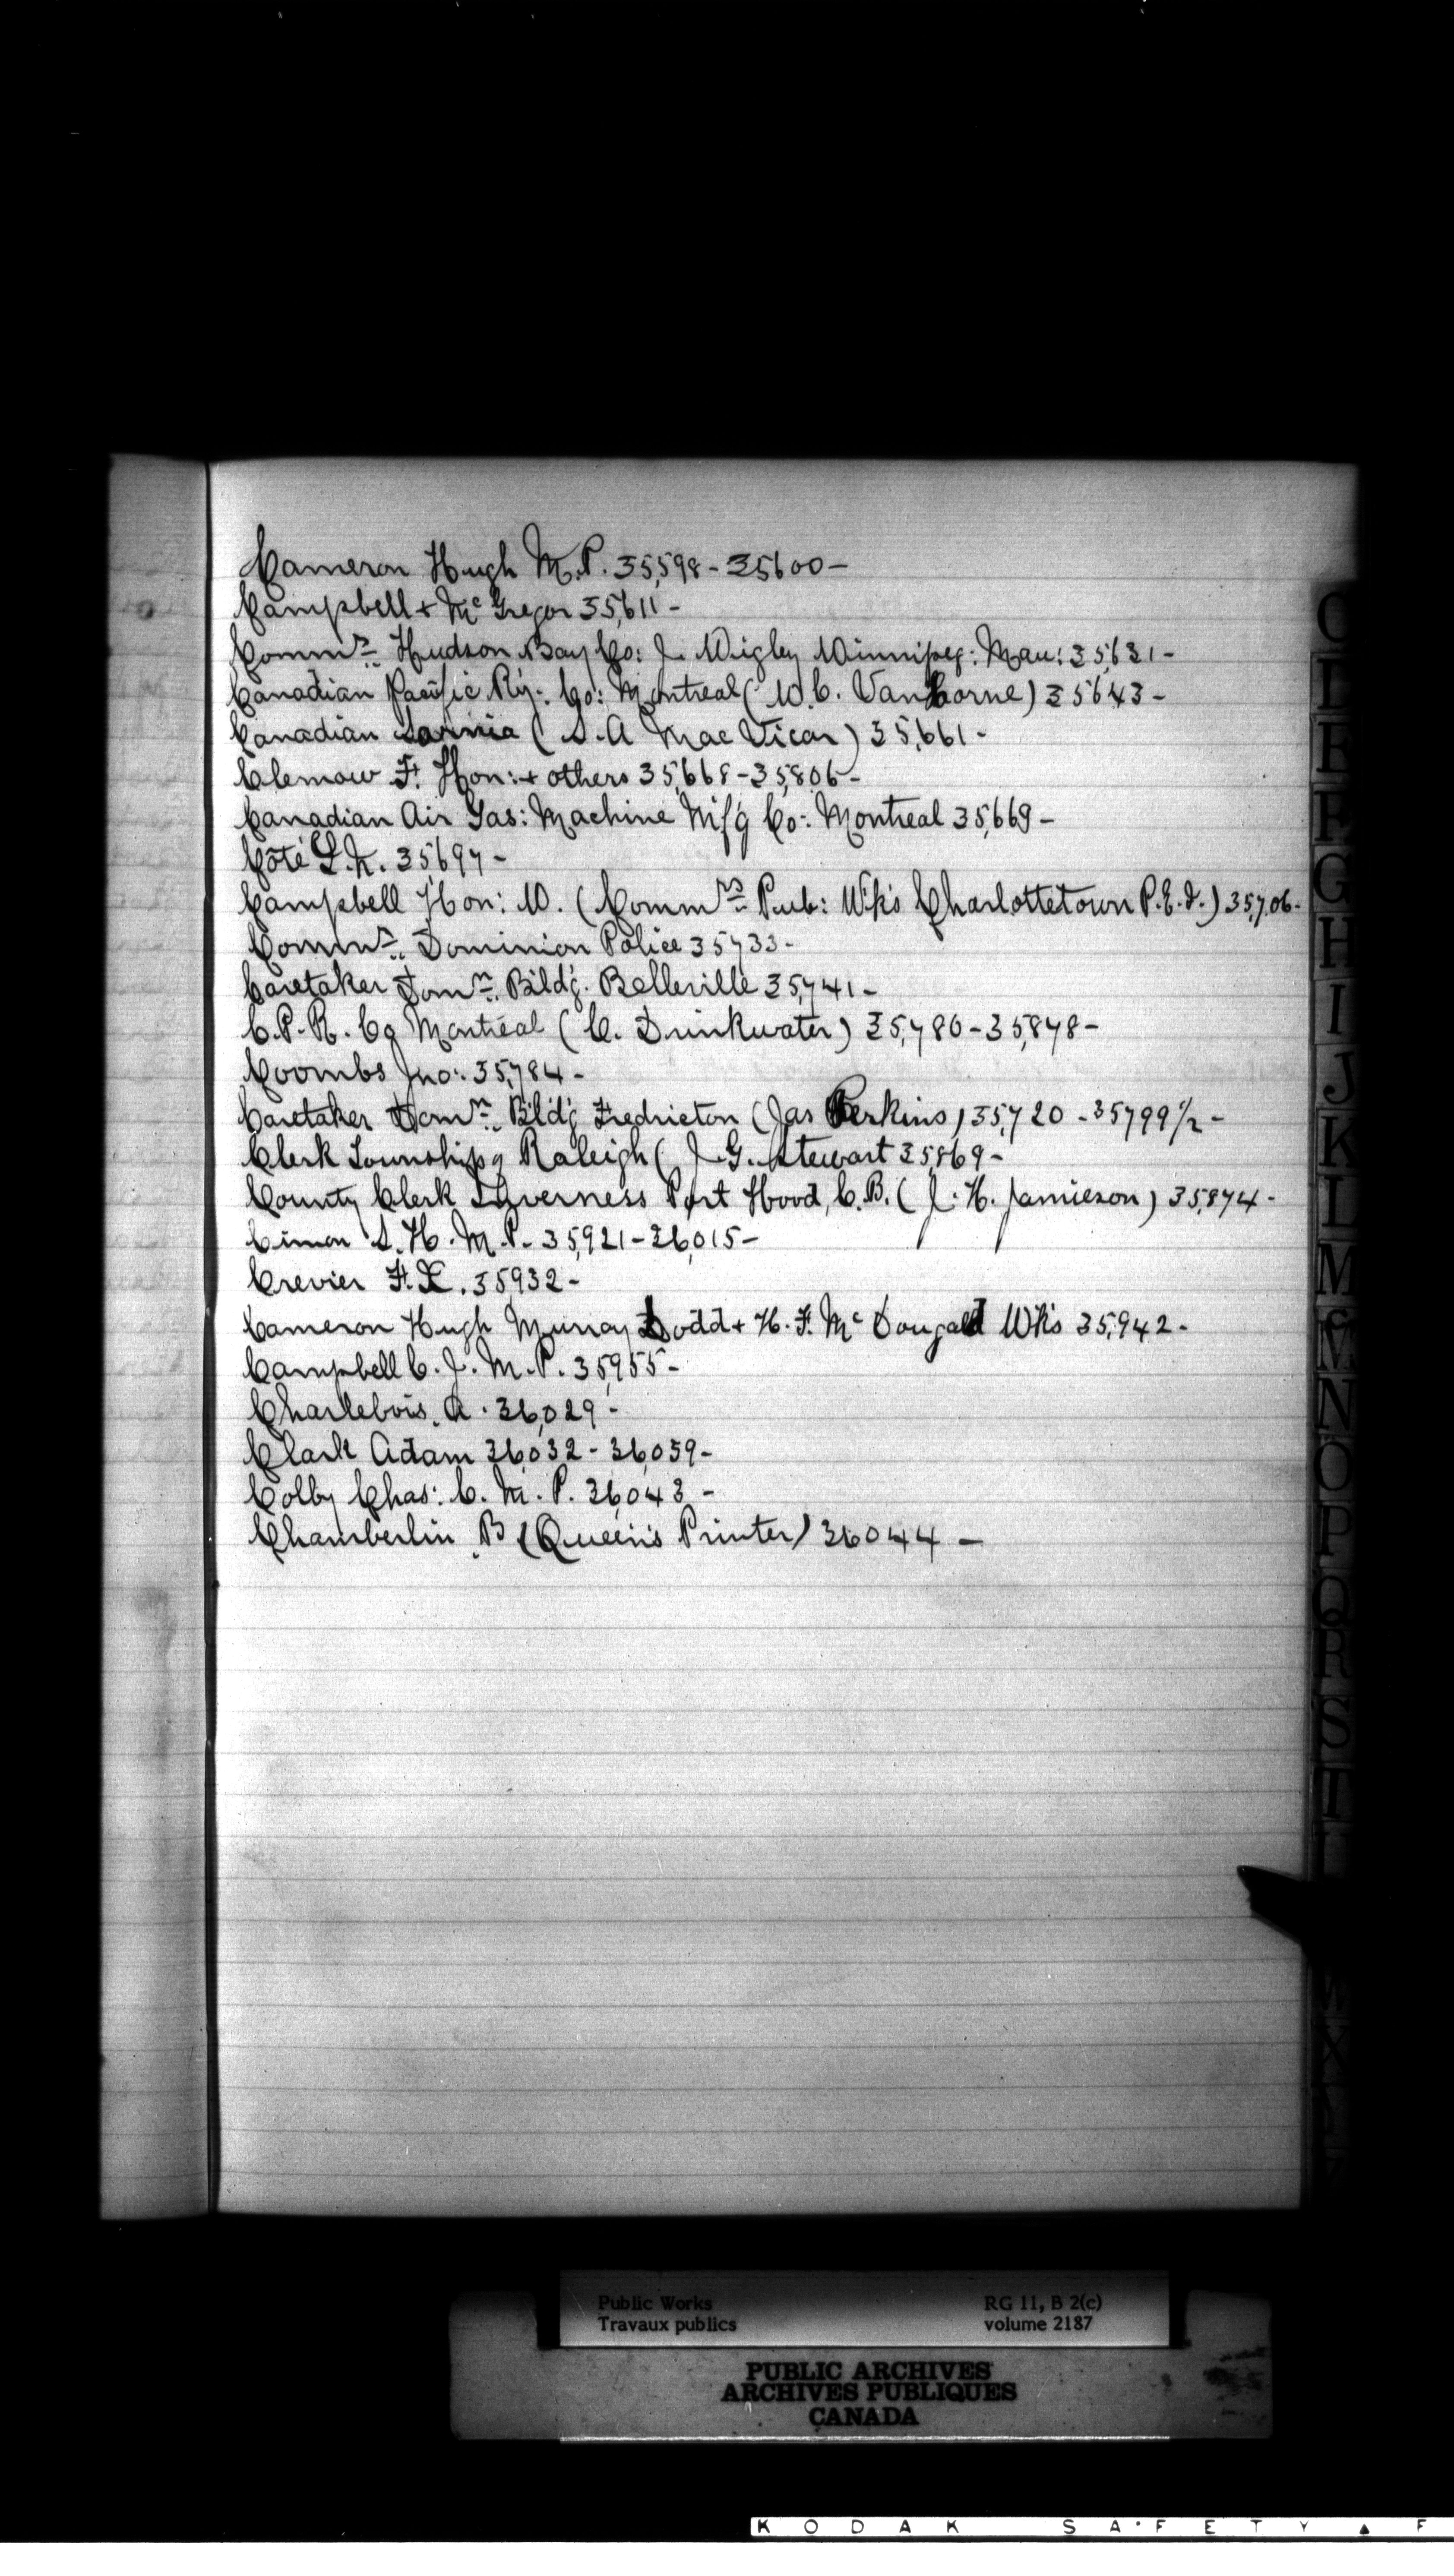 Cameron Hugh M.P. 35,598 - 35600 -
Campbell + McGregor 35,611 -
Commr. Hudson Bay Co: J. Wigley Winnipeg: Man: 35,631 -
Canadian Pacific Ry: Co: Montreal (W.C. VanHorne) 35643 -
Canadian Sarnia (S.A MacVicar) 35,661 -
Clemow F. Hon: + others 35,668 - 35,806 -
Canadian Air Gas: Machine Mf'g Co: Montreal 35,669 -
Coté L.N. 35,697 -
Campbell Hon: W. (Commrs. Pub: Wks Charlottetown P.E.I.) 35,706 -
Commr. Dominion Police 35733 -
Caretaker Domn. Bldg. Belleville 35,741 -
C.P.R. Co Montreal (C. Drinkwater) 35,780 - 35,878 -
Coombs Jno: 35,784 -
Caretaker Domn. Bldg Fredricton (Jas Perkins) 35,720 - 35799 1/2 -
Clerk Township of Raleigh (J.G. Stewart 35,869 -
County Clerk Inverness Port Hood, C.B. (J. H. Jamieson) 35,874 -
Cimon S. H. M.P. 35,921 - 36,015 -
Crevier F.X. 35932 -
Cameron Hugh Murray Dodd + H. F. McDougald Wks 35,942 -
Campbell C. J. M.P. 35,955 -
Charlebois. A. 36,029 -
Clark Adam 36,032 - 36,059 -
Colby Chas: C. M.P. 36,043 -
Chamberlin B (Queen's Printer) 36044 -
C
D
E
F
G
H
I
J
K
L
M
Mc
N
O
P
Q
R
S
T
W
X
Public Works
Travaux publics
RG 11, B 2(c)
volume 2187
PUBLIC ARCHIVES
ARCHIVES PUBLIQUES
CANADA
KODAK SAFETY ▲ F